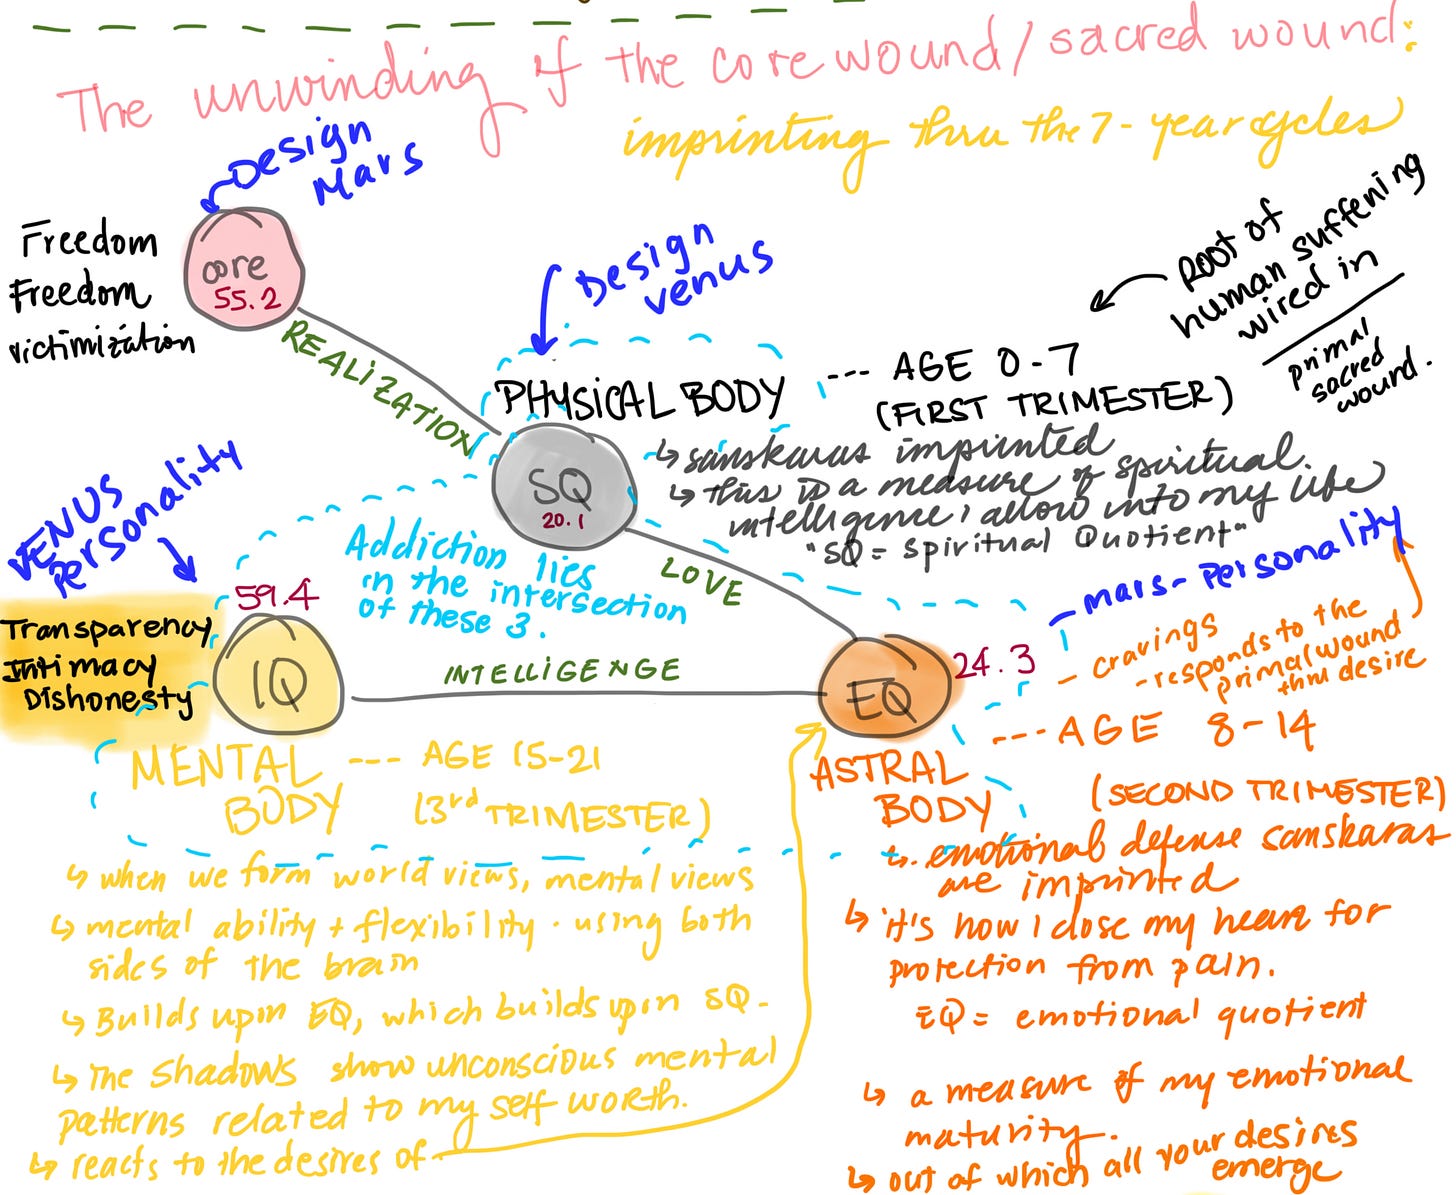 The unwinding of the core wound/sacred wound:
imprinting thru the 7-year cycles
Design
Mars
Freedom
Freedom
victimization
core
55.2
REALIZATION
Design
venus
Root of
human suffering
wired in
primal
sacred
wound.
PHYSICAL BODY --- AGE 0-7
(FIRST TRIMESTER)
SQ
20.1
↳ sanskaras imprinted
↳ this is a measure of spiritual
intelligence i allow into my life
"SQ = Spiritual Quotient"
VENUS
Personality
Addiction lies
in the intersection
of these 3.
LOVE
mars-Personality
59.4
Transparency
Intimacy
Dishonesty
IQ
INTELLIGENGE
EQ
24.3
- cravings
- responds to the
primal wound
thru desire
MENTAL
BODY
--- AGE 15-21
(3rd TRIMESTER)
ASTRAL
BODY
--- AGE 8-14
(SECOND TRIMESTER)
↳ when we form world views, mental views
↳ mental ability + flexibility · using both
sides of the brain
↳ Builds upon EQ, which builds upon SQ-
↳ The Shadows show unconscious mental
patterns related to my self worth.
↳ reacts to the desires of
↳ emotional defense sanskaras
are imprinted
↳ it's how i close my heart for
protection from pain.
EQ = emotional quotient
↳ a measure of my emotional
maturity.
↳ out of which all your desires
emerge